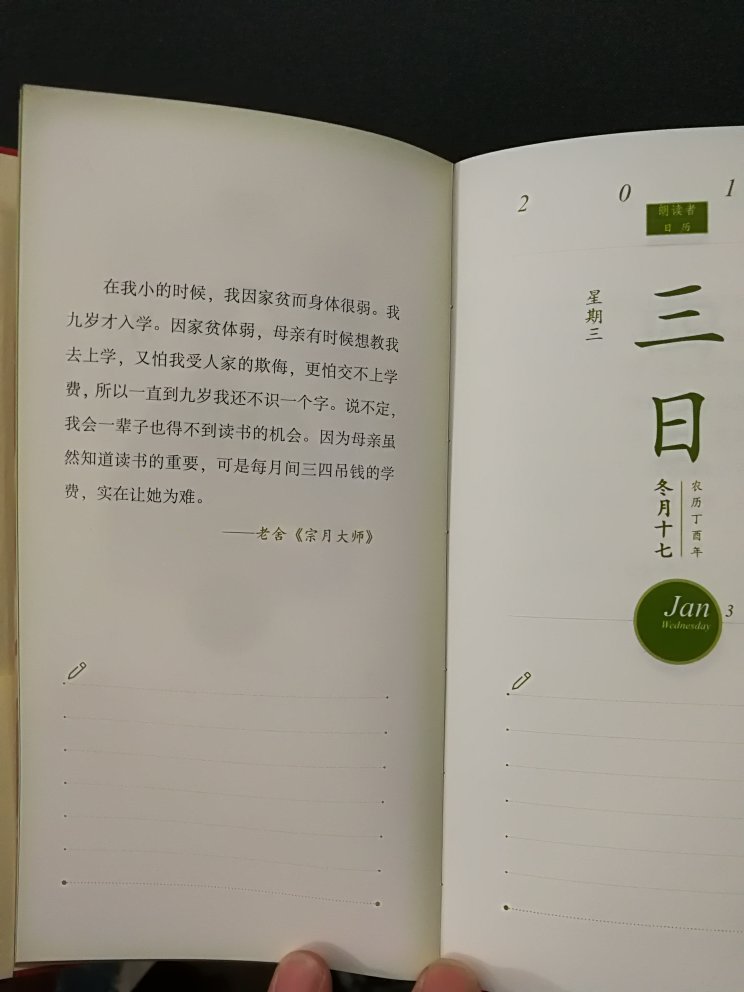 在我小的时候，我因家贫而身体很弱。我
九岁才入学。因家贫体弱，母亲有时候想教我
去上学，又怕我受人家的欺侮，更怕交不上学
费，所以一直到九岁我还不识一个字。说不定，
我会一辈子也得不到读书的机会。因为母亲虽
然知道读书的重要，可是每月间三四吊钱的学
费，实在让她为难。
——老舍《宗月大师》
2 0 1
朗读者
日历
星期三
三日
农历丁酉年
冬月十七
Jan
Wednesday
3